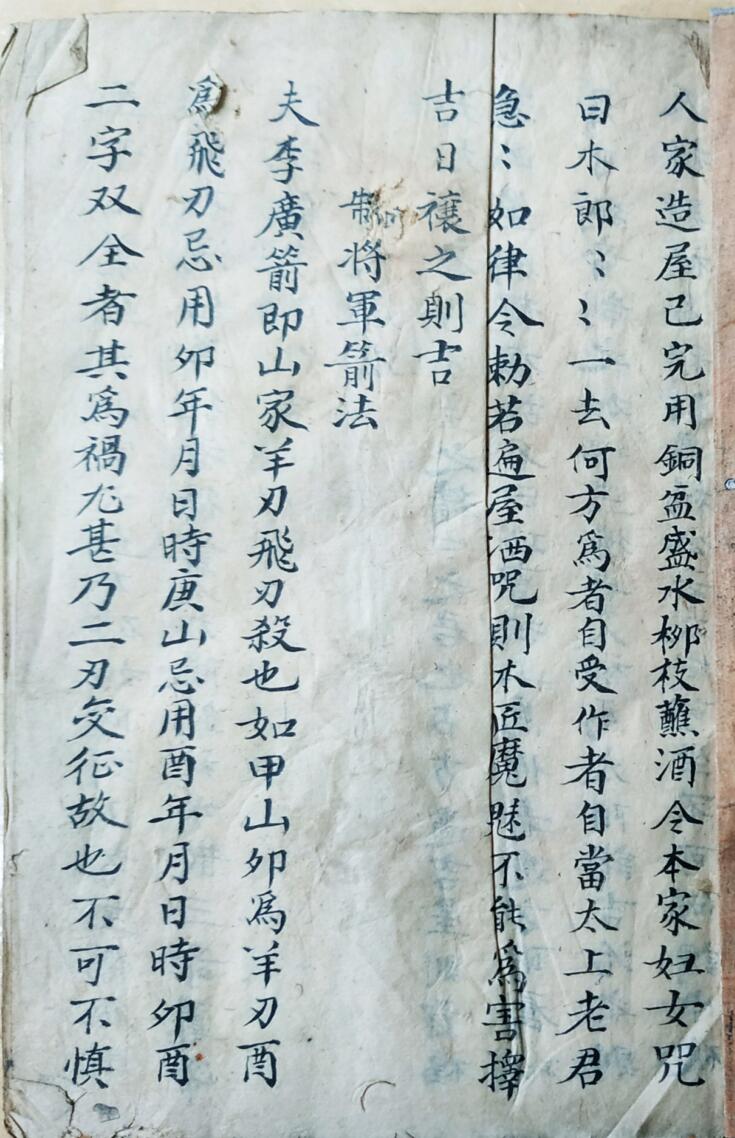 人家造屋已完用銅盆盛水柳枝蘸洒令本家妇女咒
曰木郎〻〻一去何方為者自受作者自當太上老君
急〻如律令勅若遍屋洒咒則木匠魔魅不能為害擇
吉日禳之則吉
制將軍箭法
夫李廣箭即山家羊刃飛刃殺也如甲山夘為羊刃酉
為飛刃忌用夘年月日時庚山忌用酉年月日時夘酉
二字双全者其為禍尤甚乃二刃交征故也不可不慎